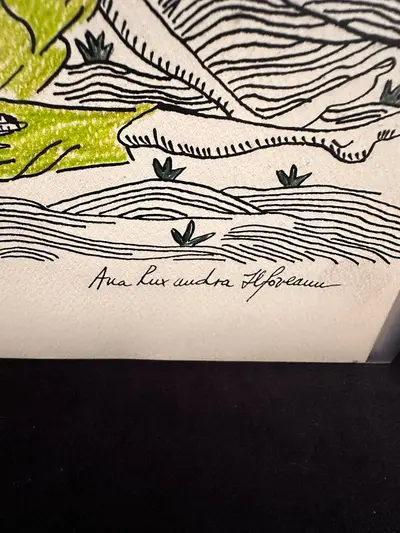 Ana Ruxandra Ilfoveanu